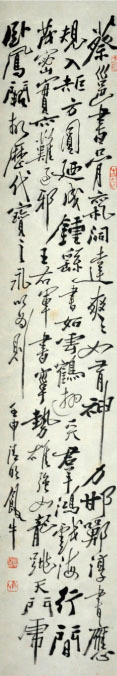 蔡邕書骨氣洞達爽々如有神力邯鄲淳書應
規入矩方圓迺成鍾繇書如雲鶴遊天群鴻戲海行間
茂密實亦難過邪王右軍書字勢雄強如龍跳天門虎
臥鳳閣故歷代寶之永以為則
壬申清明飯牛